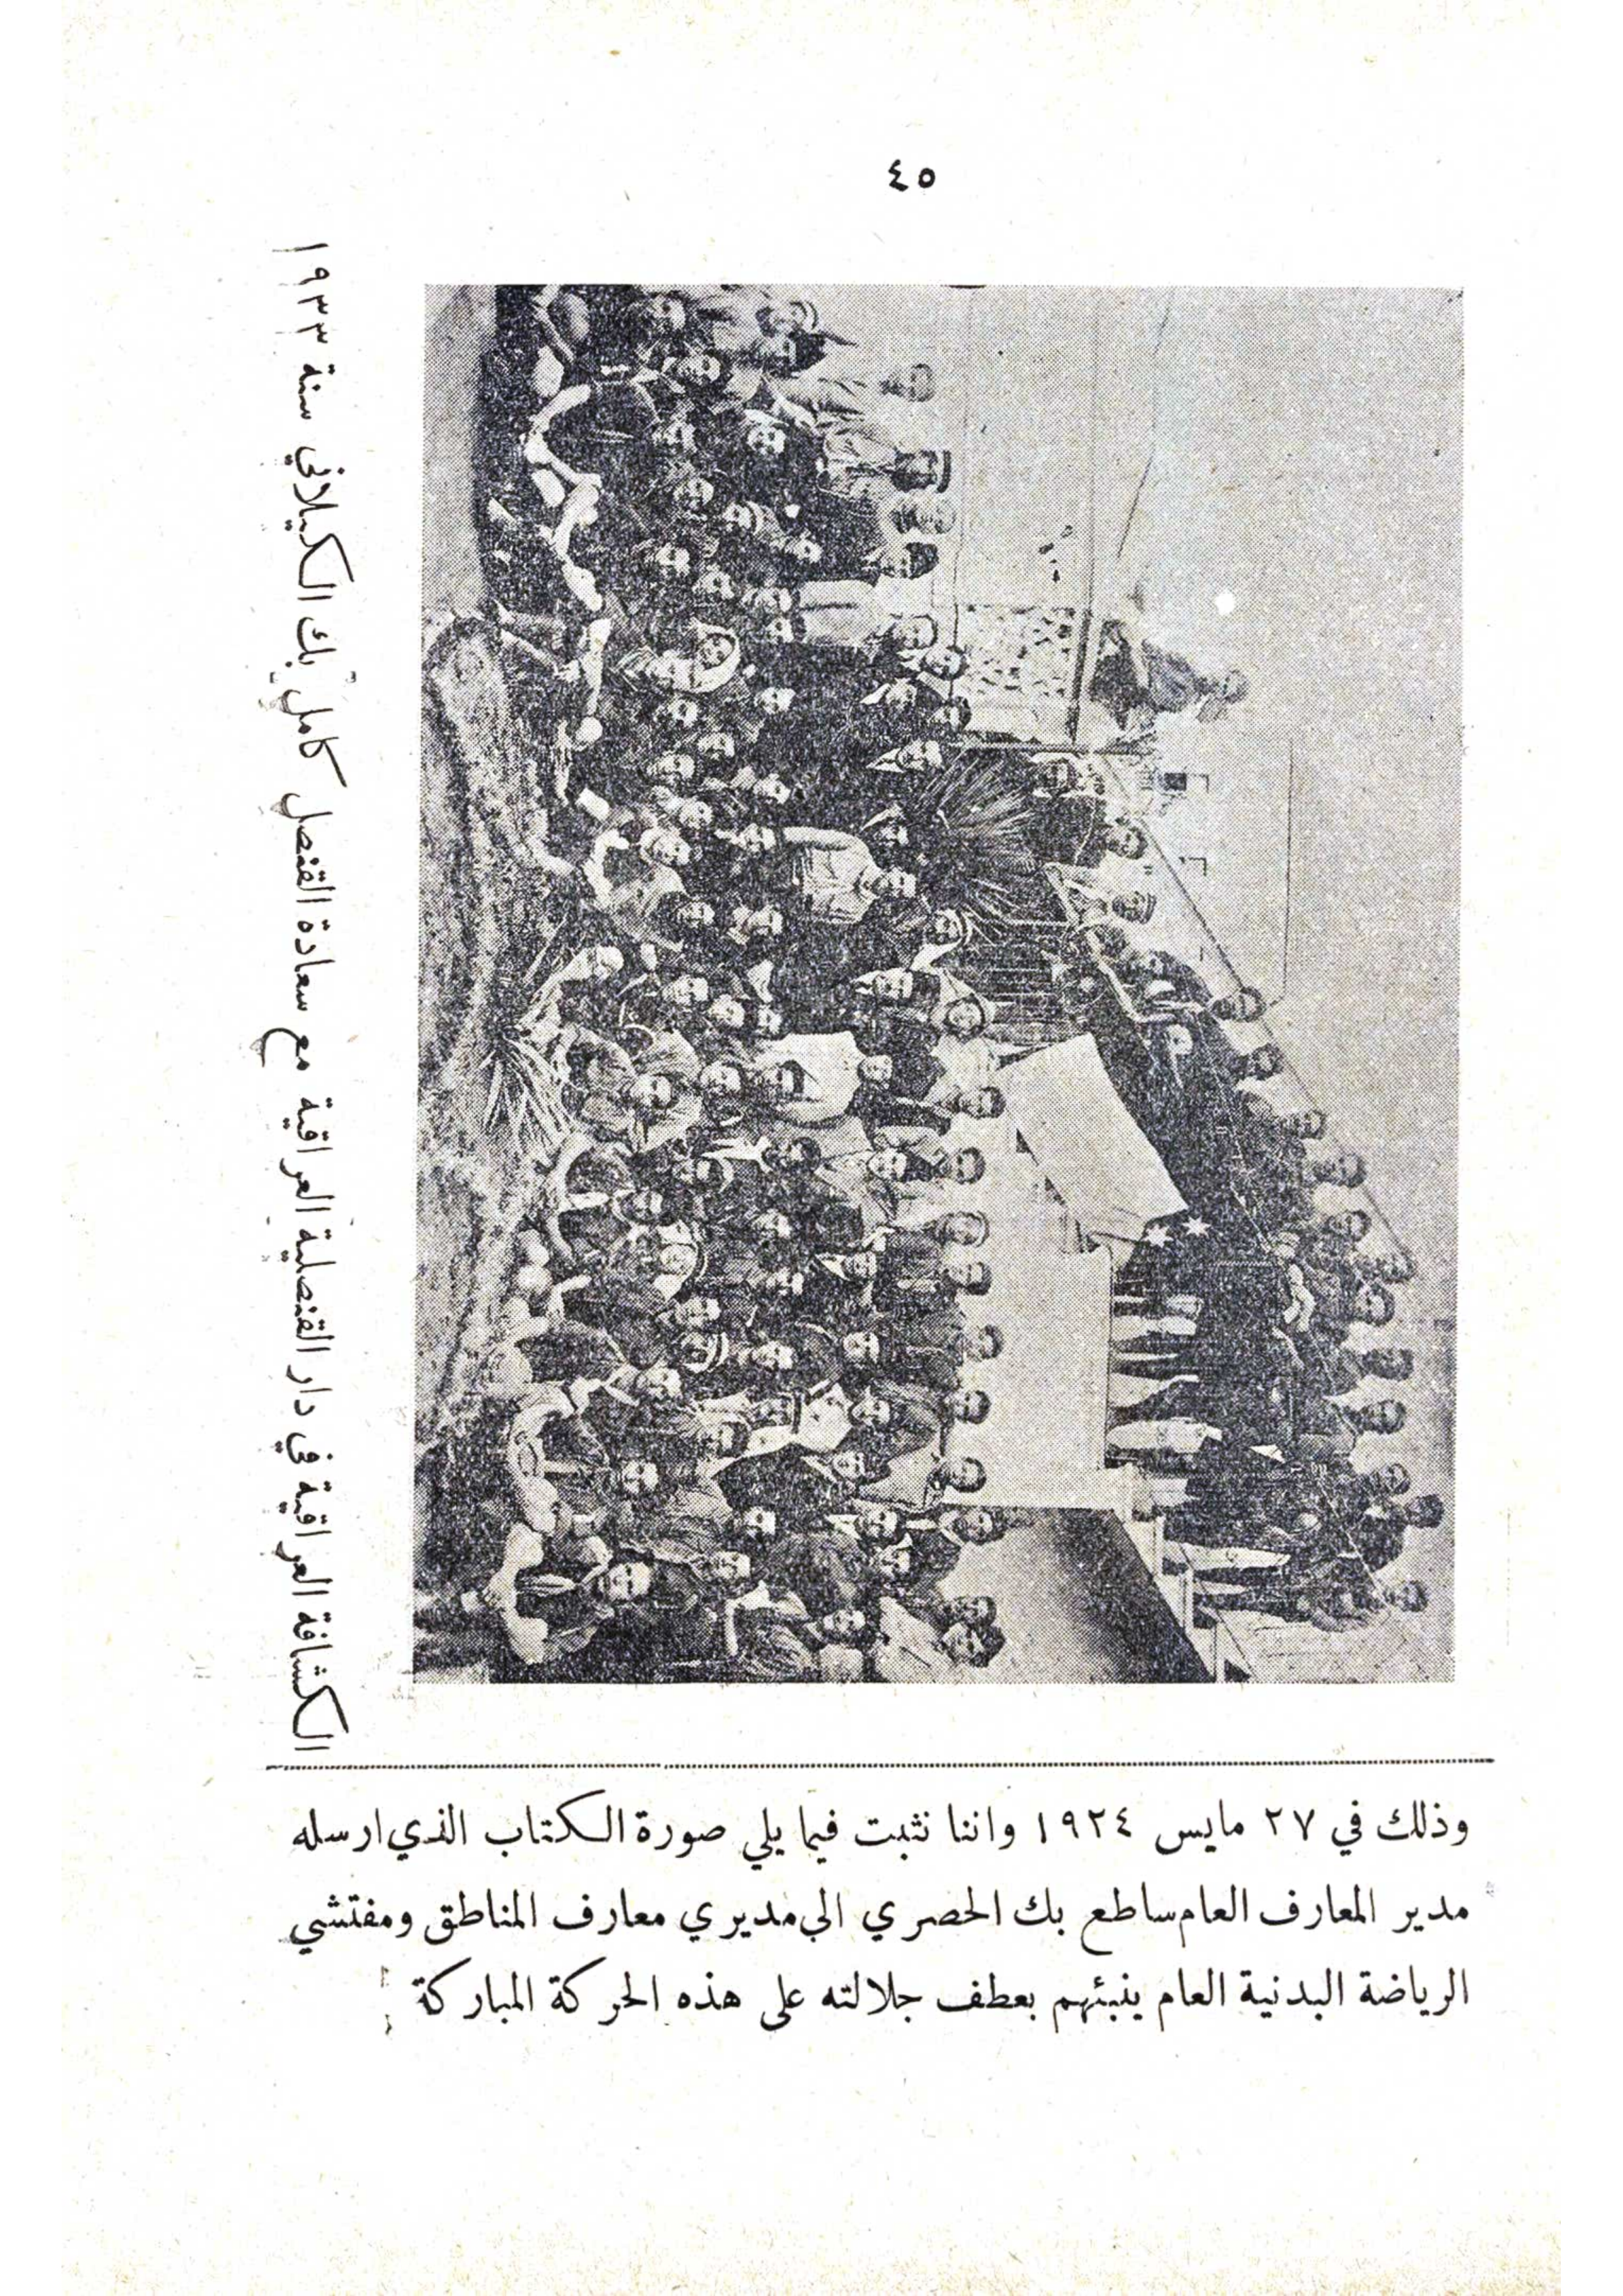 ٤٥
الكشافة العراقية في دار القنصلية العراقية مع سعادة القنصل كامل بك الكيلاني سنة ١٩٣٣
وذلك في ٢٧ مايس ١٩٢٤ واننا نثبت فيما يلي صورة الكتاب الذي ارسله
مدير المعارف العام ساطع بك الحصري الى مديري معارف المناطق ومفتشي
الرياضة البدنية العام ينبئهم بعطف جلالته على هذه الحركة المباركة :